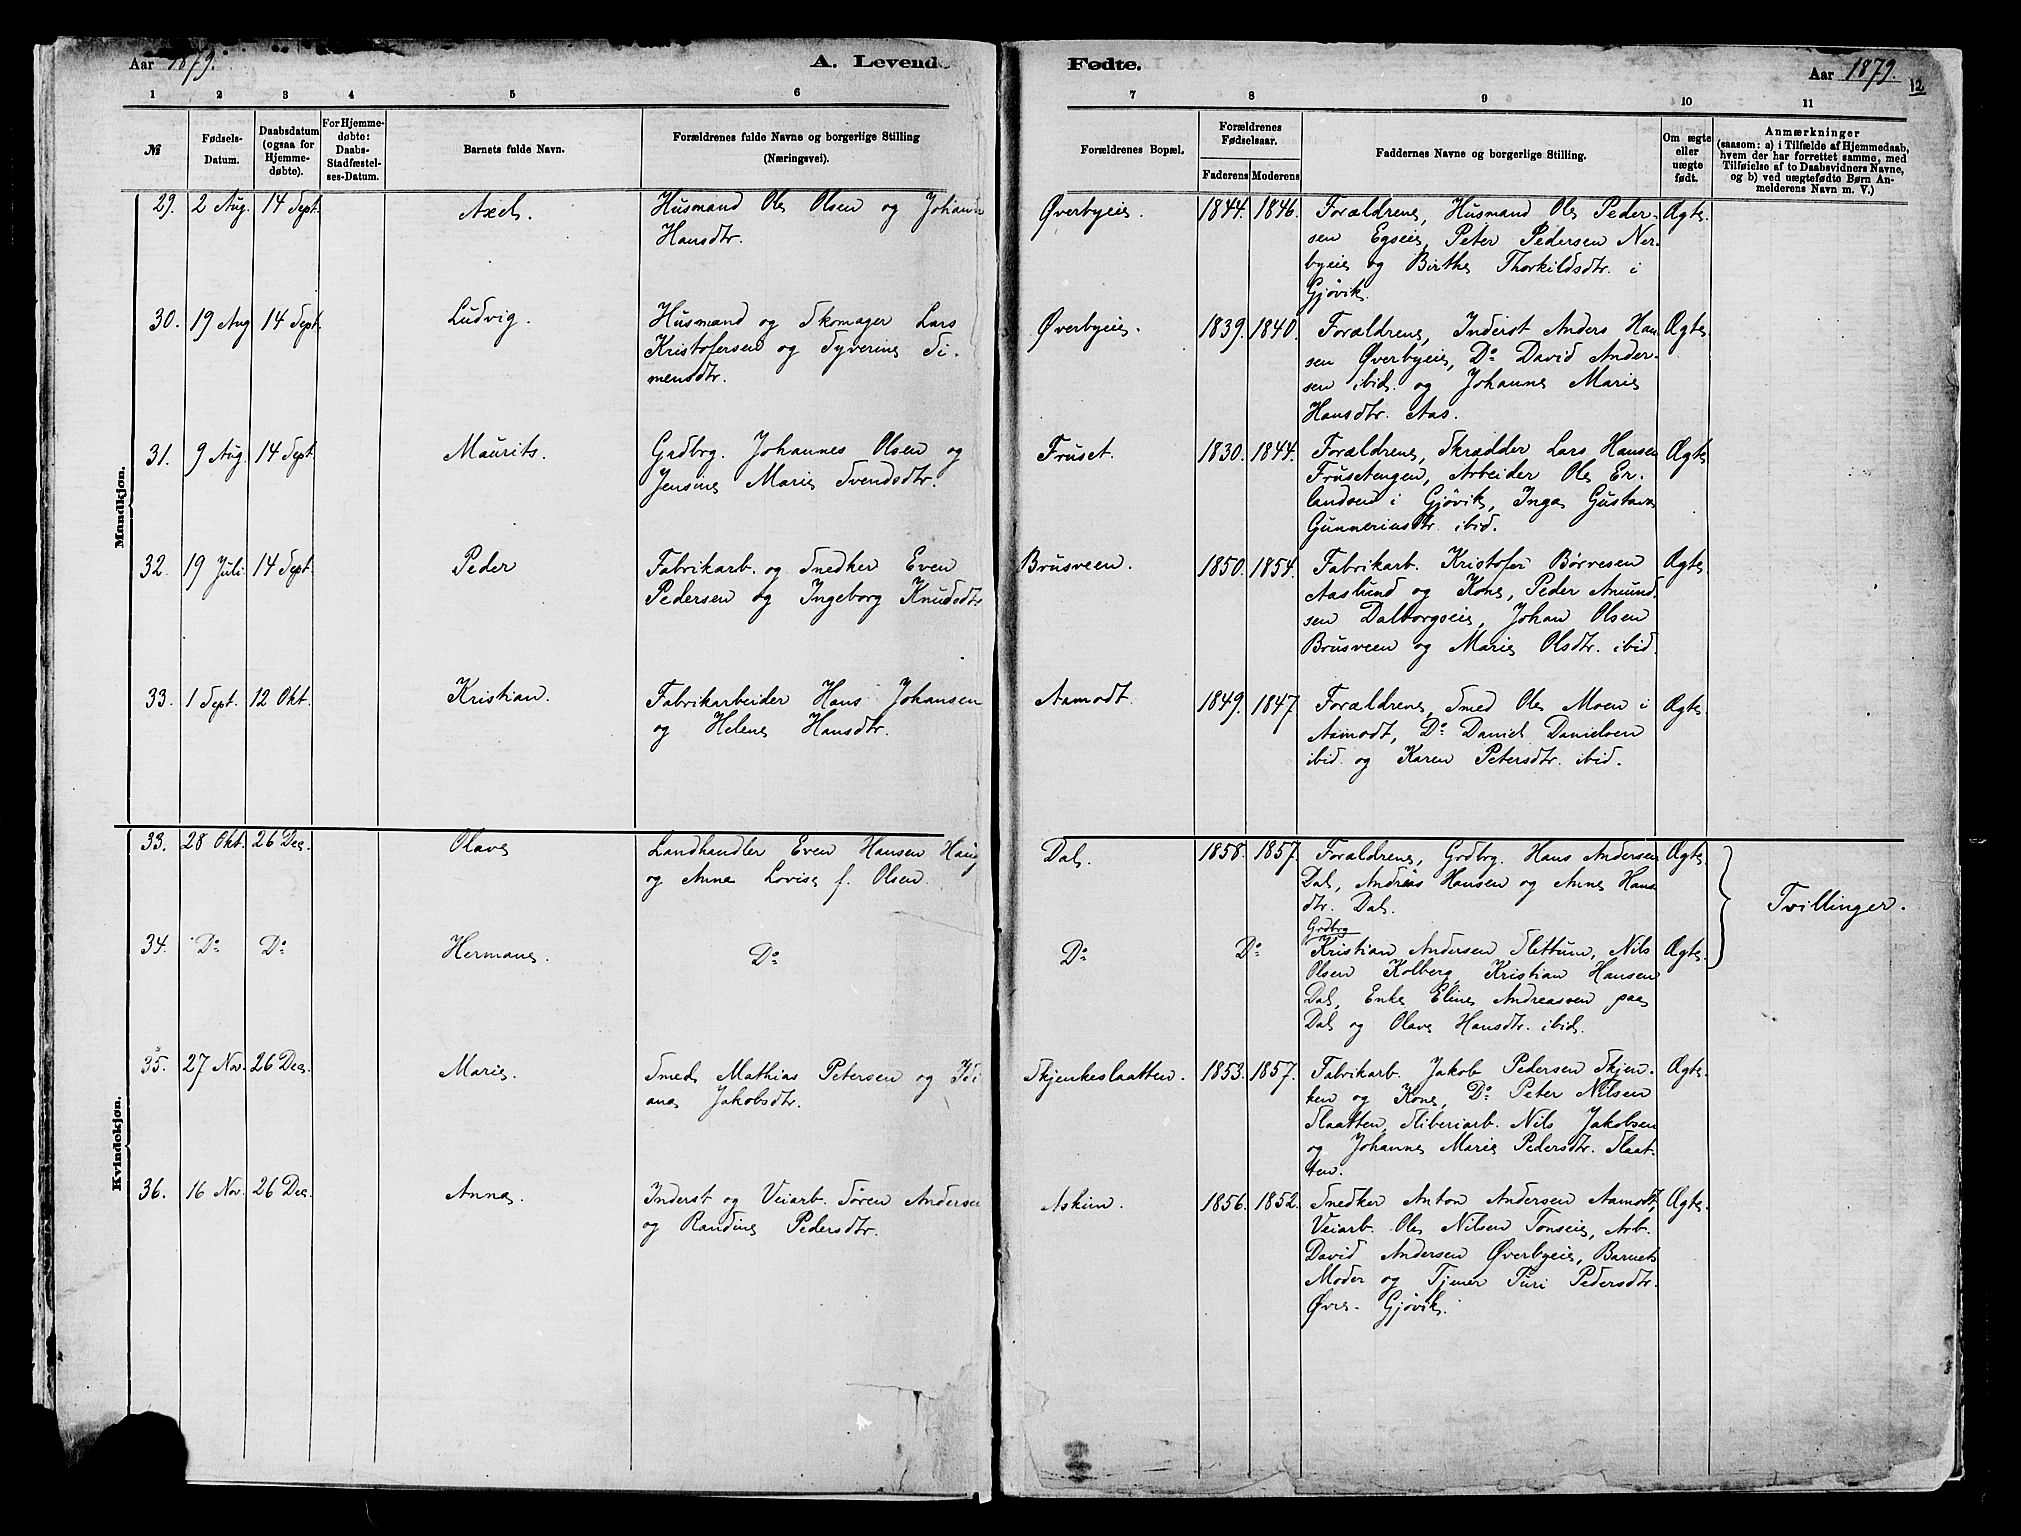 Aar 1879.
A. Levende
Fødte.
Aar 1879.
12
1 2 3 4 5 6 7 8 9 10 11
№
Fødsels-
Datum.
Daabsdatum
(ogsaa for
Hjemme-
døbte).
For Hjemme-
døbte:
Daabs-
Stadfæstel-
ses-Datum.
Barnets fulde Navn.
Forældrenes fulde Navne og borgerlige Stilling
(Næringsvei).
Forældrenes Bopæl.
Forældrenes
Fødselsaar.
Faderens Moderens
Faddernes Navne og borgerlige Stilling.
Om ægte
eller
uægte
født.
Anmærkninger
(saasom: a) i Tilfælde af Hjemmedaab,
hvem der har forrettet samme, med
Tilføielse af to Daabsvidners Navne,
og b) ved uægtefødte Børn An-
melderens Navn m. V.)
Mandkjøn.
29. 2 Aug. 14 Sept. Axel.
Husmand Ole Olsen og Johanne
Hansdtr.
Øverbyeie. 1844. 1846.
Forældrene, Husmand Ole Peder-
sen Egseie, Peter Pedersen Ner-
byeie og Birthe Thorkildsdtr. i
Gjøvik.
Ægte.
30. 19 Aug 14 Sept. Ludvig.
Husmand og Skomager Lars
Kristofersen og Syverine Si-
mensdtr.
Øverbyeie. 1839. 1840.
Forældrene, Inderst Anders Han-
sen Øverbyeie, Do David Ander-
sen ibid. og Johanne Marie
Hansdtr. Aas.
Ægte.
31. 9 Aug. 14 Sept. Maurits.
Grdbrg. Johannes Olsen og
Jensine Marie Svendsdtr.
Fruset. 1830. 1844.
Forældrene, Skrædder Lars Hansen
Frusetengen, Arbeider Ole Er-
landsen i Gjøvik, Inga Gustava
Gunneriusdtr. ibid.
Ægte
32. 19 Juli. 14 Sept. Peder
Fabrikarb. og Snedker Even
Pedersen og Ingeborg Knudsdtr
Brusveen. 1850. 1854.
Fabrikarb. Kristofer Børresen
Aaslund og Kone, Peder Amund-
sen Dalborgseie, Johan Olsen
Brusveen og Marie Olsdtr. ibid.
Ægte.
33. 1 Sept. 12 Okt. Kristian.
Fabrikarbeider Hans Johansen
og Helene Hansdtr.
Aamodt. 1849. 1847.
Forældrene, Smed Ole Moen i
Aamodt, Do Daniel Danielsen
ibid. og Karen Petersdtr. ibid.
Ægte.
Kvindekjøn.
33. 28 Okt. 26 Dec. Olave
Landhandler Even Hansen Haug
og Anne Lovise f. Olsen.
Dal. 1858. 1857.
Forældrene, Grdbrg. Hans Andersen
Dal, Andreas Hansen og Anne Hans
dtr. Dal.
Ægte.
Tvillinger.
34. Do Do Hermane. Do
Do Do
Grdbrg
Kristian Andersen Slettum, Nils
Olsen Kolberg, Kristian Hansen
Dal, Enke Eline Andreasen paa
Dal og Olave Hansdtr. ibid.
Ægte.
35. 27 Nov. 26 Dec. Marie.
Smed Mathias Petersen og Idi
ane Jakobsdtr.
Skjenkeslaatten. 1853. 1857.
Fabrikarb. Jakob Pedersen Skjen-
ken og Kone, Do Peter Nilsen
Slaatten, Sliberiarb. Nils Jakobsen
og Johanne Marie Pedersdtr. Slaat-
ten.
Ægte.
36. 16 Nov. 26 Dec. Anna.
Inderst og Veiarb. Søren Andersen
og Randine Pedersdtr.
Askim. 1856. 1852.
Snedker Anton Andersen Aamodt,
Veiarb. Ole Nilsen Tonseie, Arb.
David Andersen Øverbyeie, Barnets
Moder og Tjener Turi Pedersdtr.
Øvre-Gjøvik.
Ægte.